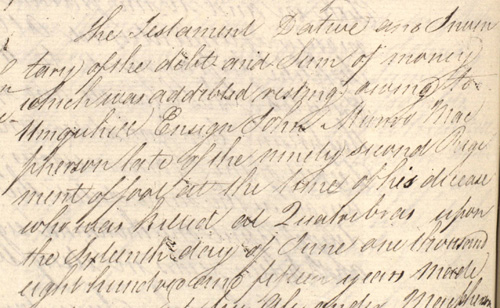 The Testament Dative and Inven
tary of the debts and Sum of money
which was addebted resting owing to
Umquhill Ensign John Munro Mac
pherson late of the ninety second Regi
ment of foot at the time of his decease
who was killed at Quatrebras upon
the Sixteenth day of June one thousand
eight hundred and fifteen years Made